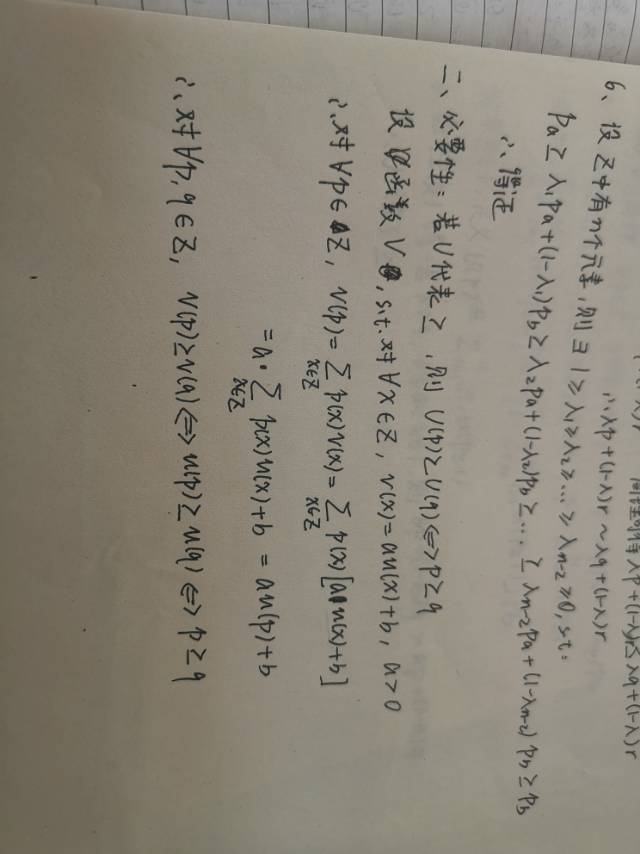 ∴λp+(1-λ)r~λq+(1-λ)r
6、设Z中有n个元素,则∃1≥λ₁≥λ₂≥…≥λn-2≥0,s.t.
pa≥λ₁pa+(1-λ₁)pb≥λ₂pa+(1-λ₂)pb≥…≥λn-2pa+(1-λn-2)pb≥pb
∴得证
二、必要性:若U代表≥,则U(p)≥U(q)⇔p≥q
设函数V,s.t.对∀x∈Z,v(x)=au(x)+b,a>0
∴对∀p∈Z,v(p)=∑x∈Z p(x)v(x)=∑x∈Z p(x)[au(x)+b]
=a·∑x∈Z p(x)u(x)+b=au(p)+b
∴对∀p,q∈Z,v(p)≥v(q)⇔u(p)≥u(q)⇔p≥q